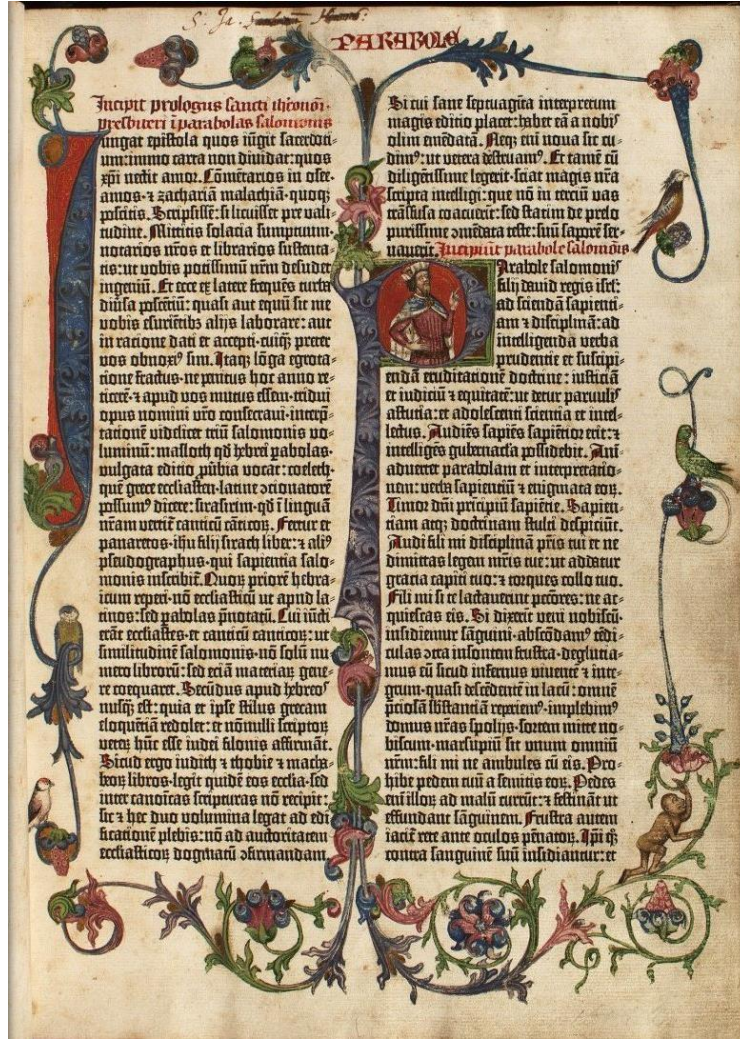 PARABOLE
Incipit prologus sancti iheronimi
presbiteri i parabolas salomonis
Iungat epistola quos iūgit sacerdoti-
um: immo carta non dividat: quos
xpi nectit amor. Cōmētarios in osee.
amos. ⁊ zachariā malachiā. quoqz
poscitis. Scripsissē: si licuisset pre vali-
tudine. Mittitis solacia sumptuum.
notarios nr̄os et librarios sustenta-
tis: ut vobis potissimū nrm̄ desudet
ingeniū. Et ecce ex latere frequēs turba
diūsa poscētiū: quasi aut equū sit me
vobis esuriētibz alijs laborare: aut
in ratione dati et accepti. cuiqz preter
vos obnoxi⁹ sim. Itaqz lōga egrota-
tione fractus. ne penitus hoc anno re-
ticerē. ⁊ apud vos mutus essem. tridui
opus nomini vr̄o consecraui. interp̄-
tationē videlicet triū salomonis vo-
luminū: masloth qd̄ hebrei pabolas.
vulgata editio pūbia vocat: coeleth.
quē grece ecclesiasten. latine ↄcionatorē
possum⁹ dicere: sirasirim. qd̄ i linguā
nr̄am vertit canticū cāticoꝝ. Fertur et
panaretos. ihu filij sirach liber: ⁊ ali⁹
pseudographus. qui sapientia salo-
monis inscribit̄. Quoꝝ priorē hebra-
icum reperi. nō ecclesiasticū ut apud la-
tinos: sed pabolas p̄notatū. Cui iūcti
erāt ecclesiastes. et canticū canticoꝝ: ut
similitudinē salomonis. nō solū nu-
mero librorū: sed eciā materiaꝝ gene-
re coequaret. Secūdus apud hebreos
nusqz est: quia et ipse stilus grecam
eloquētiā redolet: et nōnulli scriptoꝝ
veteꝝ hūc esse iudei filonis affirmāt.
Sicud ergo iudith ⁊ thobie ⁊ macha-
beoꝝ libros. legit quidē eos ecclīa. sed
inter canoīcas scripturas nō recipit:
sic ⁊ hec duo volumina legat ad edi-
ficationē plebis: nō ad auctoritatem
ecclesiasticoꝝ dogmatū ↄfirmandam.
Si cui sane septuagīta interpretum
magis editio placet: habet eā a nobis
olim emēdatā. Neqz eni nova sic cu-
dim⁹: ut vetera destruam⁹. Et tamē cū
diligētissime legerit. sciat magis nr̄a
scripta intelligi: que nō in terciū vas
trāsfusa coacuerit: sed statim de prelo
purissime ↄmēdata teste: suū saporē ser-
vauerīt. Incipiūt parabole salomōis
Parabole salomonis
filij david regis isr̄l:
ad sciendā sapienti-
am ⁊ disciplinā: ad
intelligendā verba
prudentie et suscipi-
endā eruditationē doctrine: iusticiā
et iudiciū ⁊ equitatē: ut detur paruulis
astutia: et adolescenti scientia et intel-
lectus. Audiēs sapiēs sapiētior erit: ⁊
intelligēs gubernacla possidebit. Ani-
aduertet parabolam et interpretatio-
nem: verba sapientiū ⁊ enigmata eoꝝ.
Timor dn̄i principiū sapiētie. Sapien-
tiam atqz doctrinam stulti despiciūt.
Audi fili mi disciplinā pr̄is tui et ne
dimittas legem mr̄is tue: ut addatur
gracia capiti tuo: ⁊ torques collo tuo.
Fili mi si te lactauerint pctōres: ne ac-
quiescas eis. Si dixerit veni nobiscū.
insidiemur sāguini. abscōdam⁹ tēdi-
culas ↄtra insontem frustra. deglutia-
mus eū sicud infernus viuentē ⁊ inte-
grum. quasi descēdentē in lacū: omnē
p̄ciosā sb̄stantiā repriem⁹. implebim⁹
domus nr̄as spolijs. sortem mitte no-
biscum. marsupiū sit unum omniū
nr̄m: fili mi ne ambules cū eis. Pro-
hibe pedem tuū a semitis eoꝝ. Pedes
eni illoꝝ ad malū currūt: ⁊ festināt ut
effundant sāguinem. Frustra autem
iacit̄ rete ante oculos pēnatoꝝ. Ip̄i qz
contra sanguinē suū insidiantur: et